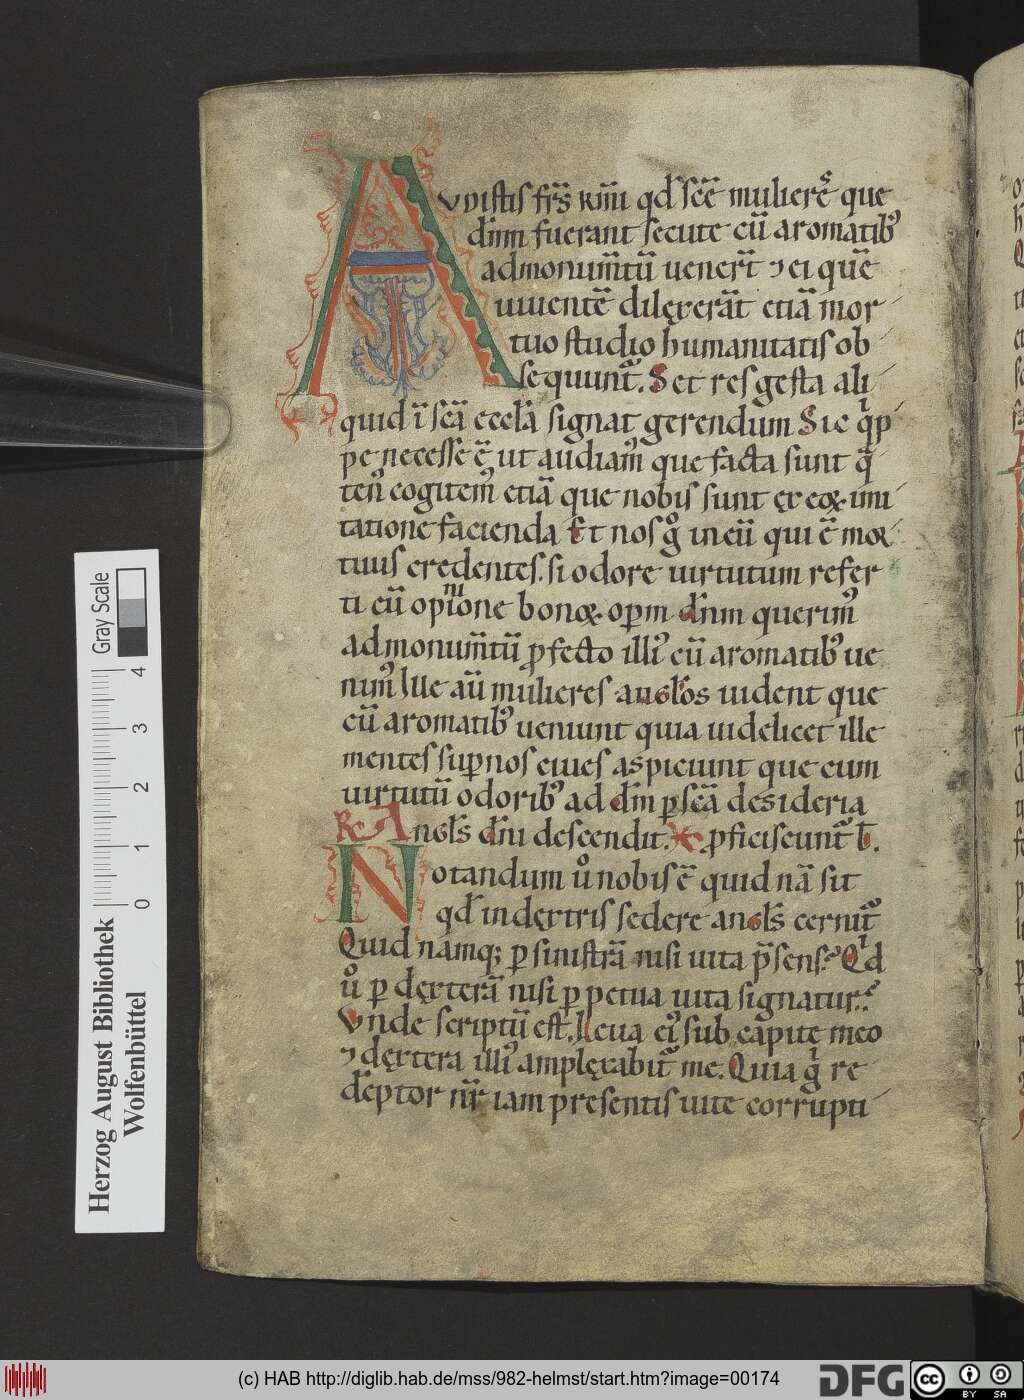 Audistis fr̄s km̄i qđ sc̄e mulierē que
dn̄m fuerant secute cū aromatibꝰ
ad monum̄tū uener̄t ⁊ ei quē
uiuentē dilęxerāt etiā mor
tuo studio humanitatis ob
sequunt̄. Set res gesta ali
quid ī scā eccłā signat gerendum Sic q̓p
pe necesse ē ut audiam̄ que facta sunt q̄
ten̄ cogitem̄ etiā que nobis sunt ęx eoꝝ imi
tatione facienda Et nos g̊ in eū qui ē mor
tuus credentes. si odore uirtutum refer
ti cū opinione bonoꝝ opm dn̄m querim̄
ad monum̄tū ꝓfecto illiꝰ cū aromatibꝰ ue
nim̄ Ille aū mulieres angłos uident que
cū aromatibꝰ ueniunt quia uidelicet ille
mentes suꝑnos ciues aspiciunt que cum
uirtutū odoribꝰ ad dn̄m ꝑ scā desideria
R̄e Angłs dn̄i descendit. ꝓficiscunt̄ b̄.
Notandum ů nobis ē quid nā sit
qđ in dęxtris sedere angłs cernit̄
Quid namqꝫ ꝑ sinistrā nisi uita p̄sens? Qđ
ů ꝑ dęxterā nisi ꝑpetua uita signatur?
Vnde scriptū est. Leua eiꝰ sub capite meo
⁊ dęxtera illiꝰ amplęxabit̄ me. Quia g̊ re
dēptor nr̄ iam presentis uite corrupti
Herzog August Bibliothek
Wolfenbüttel
Gray Scale
0 1 2 3 4
(c) HAB http://diglib.hab.de/mss/982-helmst/start.htm?image=00174
DFG
cc
BY SA